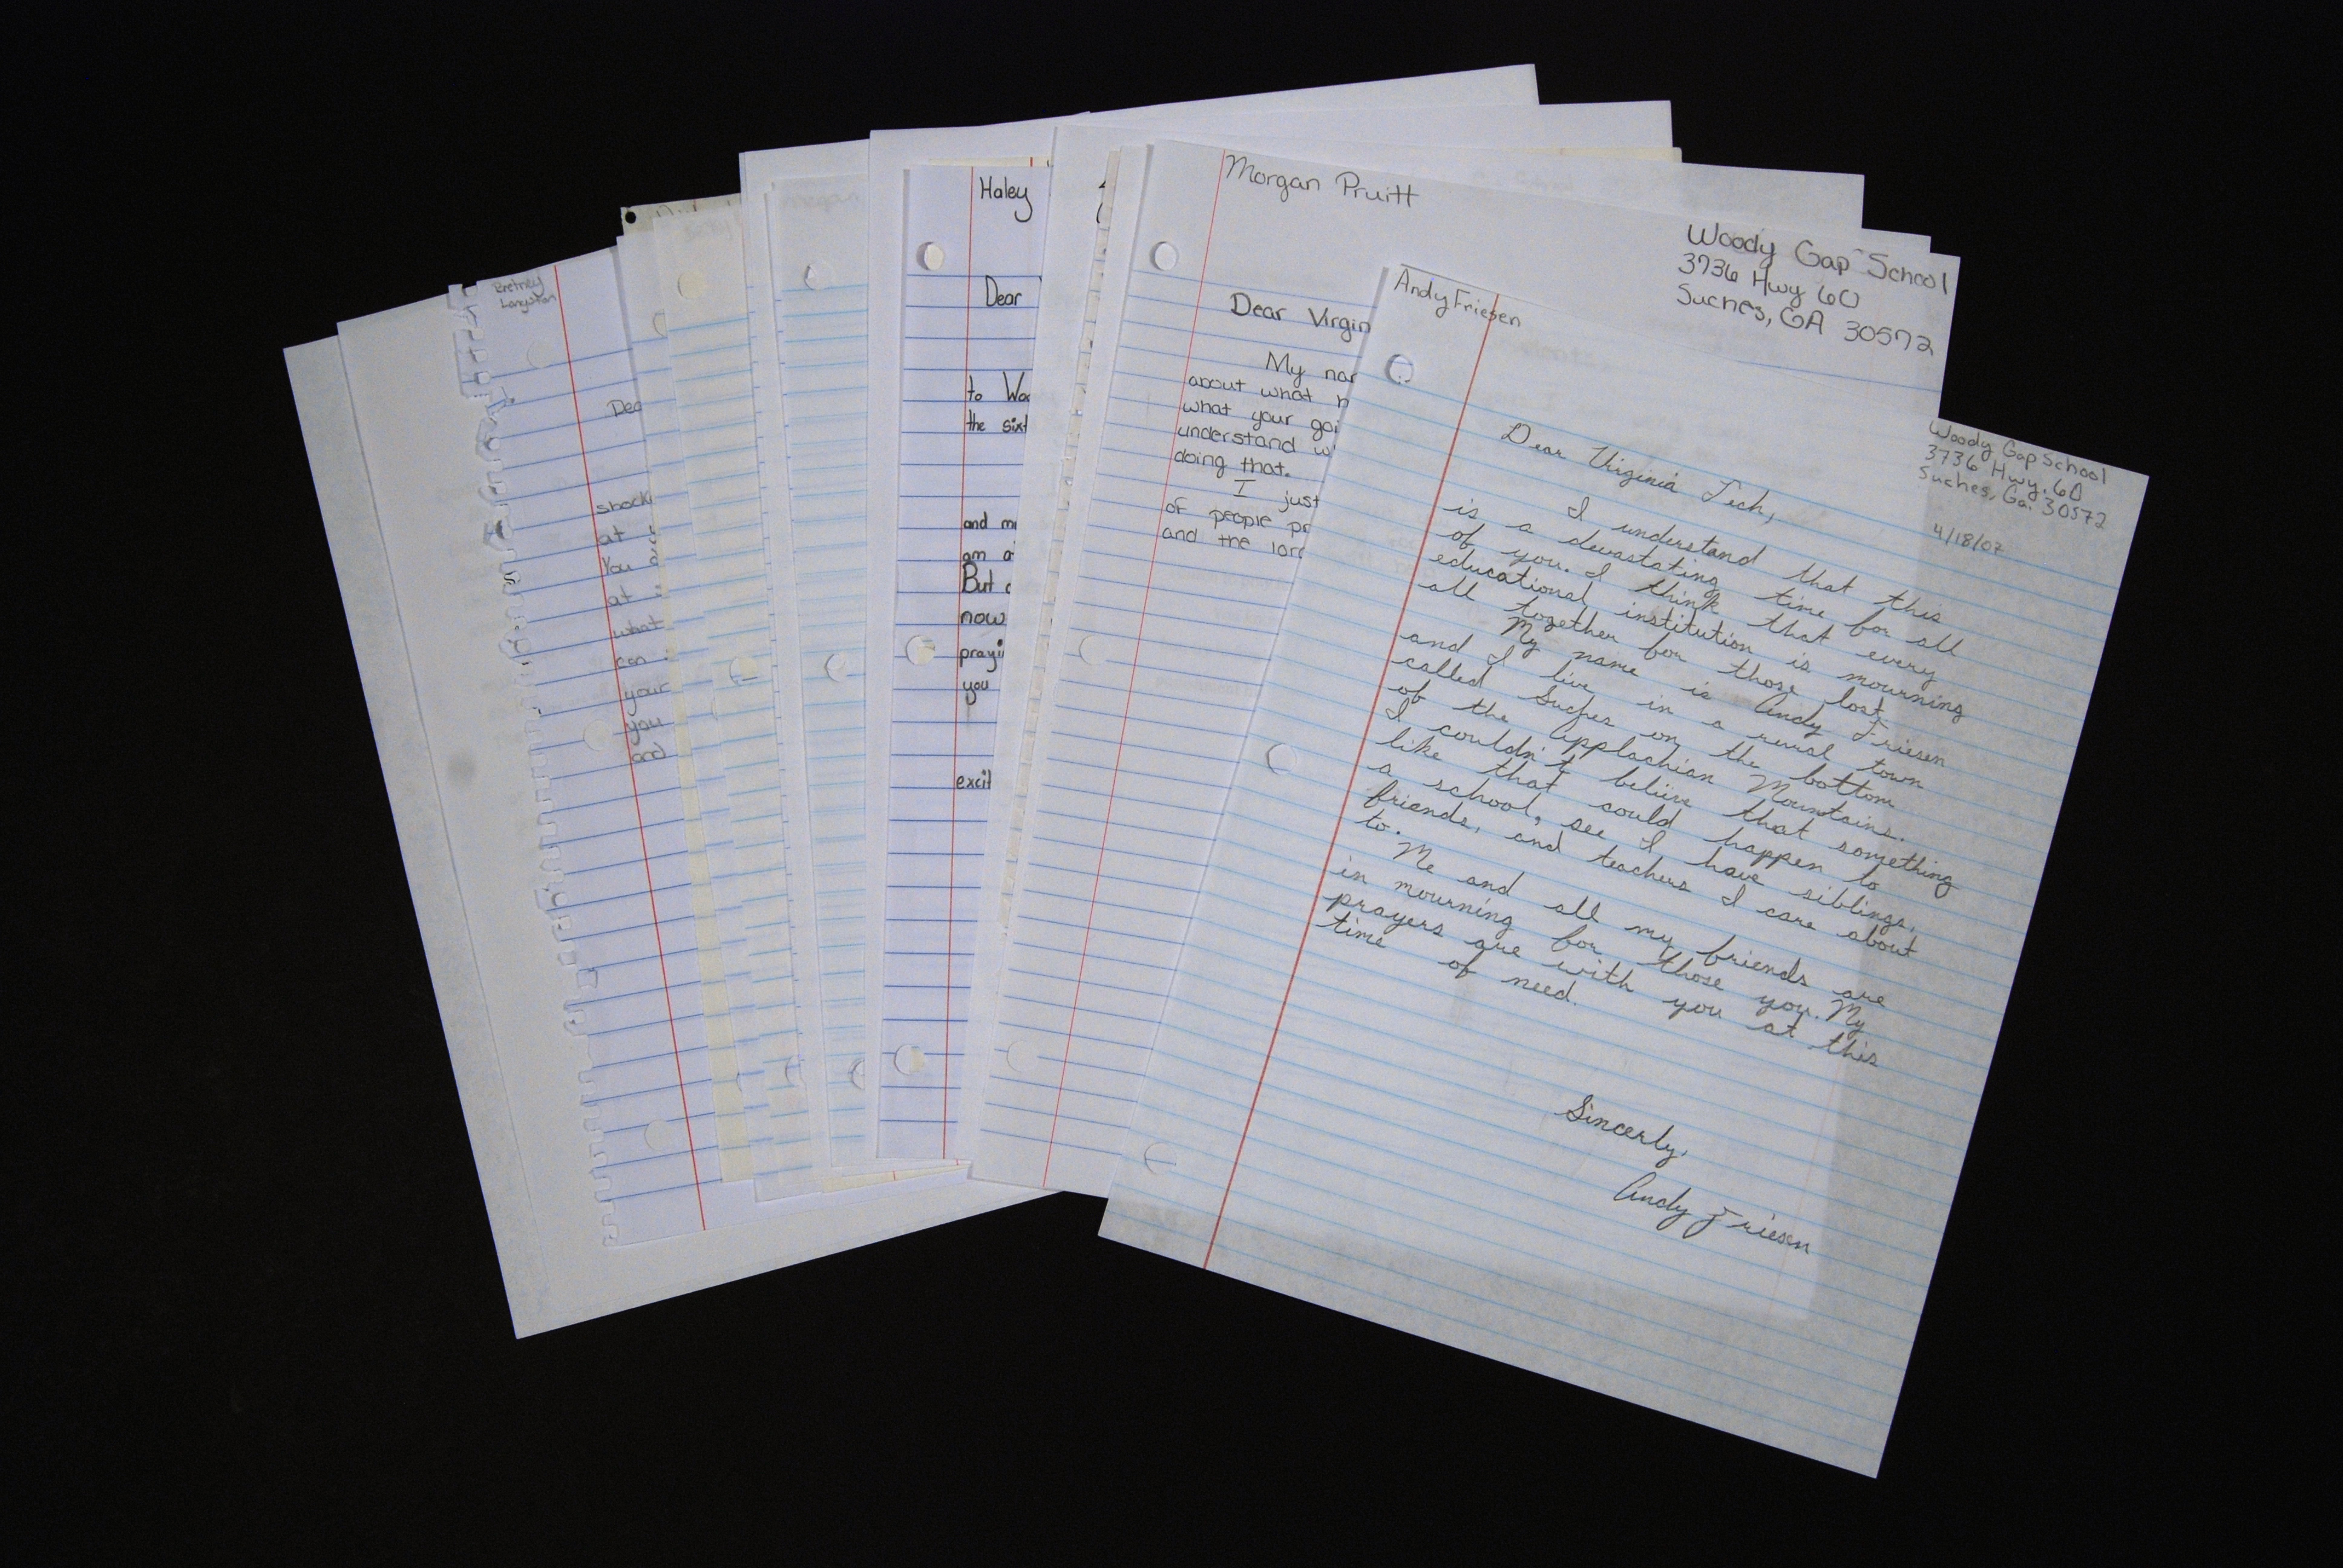 Bretney
Langston
Dea
shock
at
You
at
what
can
your
you
and
Haley
Dear
to Woo
the sixt
and m
am a
But
now
prayi
you
excit
Morgan Pruitt
Woody Gap School
3736 Hwy 60
Suches, GA 30572
Dear Virgin
My nar
about what h
what your goi
understand w
doing that.
I just
of people pr
and the lord
Andy Friesen
Woody Gap School
3736 Hwy. 60
Suches, Ga. 30572
4/18/07
Dear Virginia Tech,
I understand that this
is a devastating time for all
of you. I think that every
educational institution is mourning
all together for those lost.
My name is Andy Friesen
and I live in a rural town
called Suches on the bottom
of the Applachian Mountains.
I couldn't believe that something
like that could happen to
a school, see I have siblings,
friends, and teachers I care about
to.
Me and all my friends are
in mourning for those you. My
prayers are with you at this
time of need.
Sincerly,
Andy Friesen